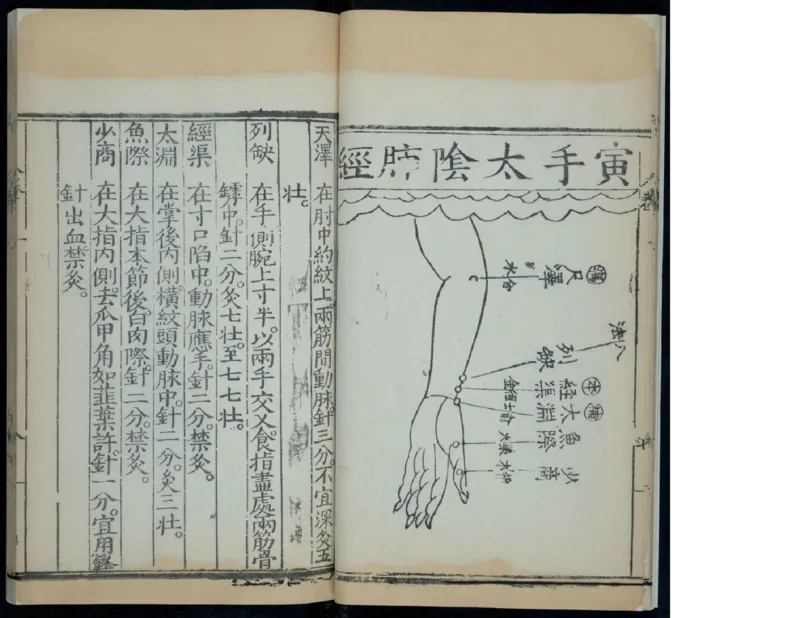 寅手太陰肺經
尺澤
水合
列缺
八法
經渠
太淵
魚際
少商
天澤　在肘中約紋上。兩筋間動脉。針三分。不宜深灸五
壯。
列缺　在手側腕上寸半。以兩手交叉。食指盡處兩筋骨
罅中。針二分。灸七壯。至七七壯。
經渠　在寸口陷中。動脉應手。針二分。禁灸。
太淵　在掌後內側。橫紋頭動脉中。針二分。灸三壯。
魚際　在大指本節後。白肉際。針二分。禁灸。
少商　在大指內側。去爪甲角如韮葉許。針一分。宜用鋒
針出血禁灸。